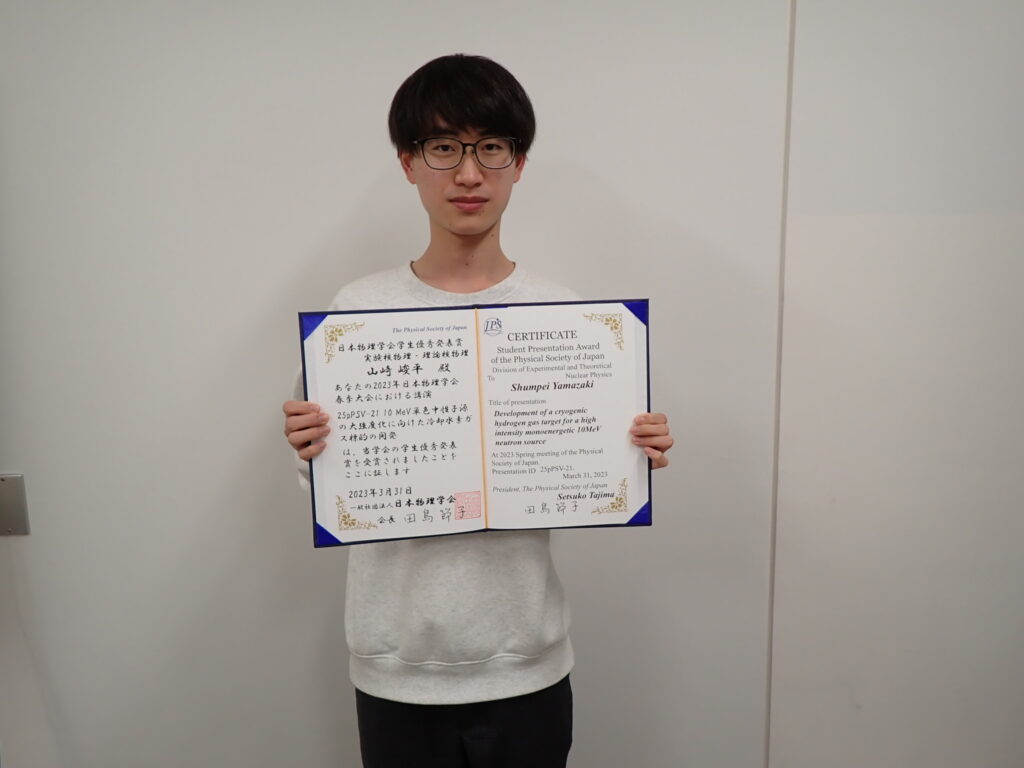 The Physical Society of Japan
日本物理学会学生優秀発表賞
実験核物理・理論核物理
山崎 峻平 殿
あなたの2023年日本物理学会
春季大会における講演
25pPSV-21 10 MeV単色中性子源
の大強度化に向けた冷却水素ガ
ス標的の開発
は、当学会の学生優秀発表
賞を受賞されましたことを
ここに証します
2023年3月31日
一般社団法人日本物理学会
会長 田島節子
JPS
CERTIFICATE
Student Presentation Award
of the Physical Society of Japan
Division of Experimental and Theoretical
Nuclear Physics
To
Shumpei Yamazaki
Title of presentation
Development of a cryogenic
hydrogen gas target for a high
intensity monoenergetic 10MeV
neutron source
At 2023 Spring meeting of the Physical
Society of Japan.
Presentation ID 25pPSV-21.
March 31, 2023
President, The Physical Society of Japan
Setsuko Tajima
田島節子